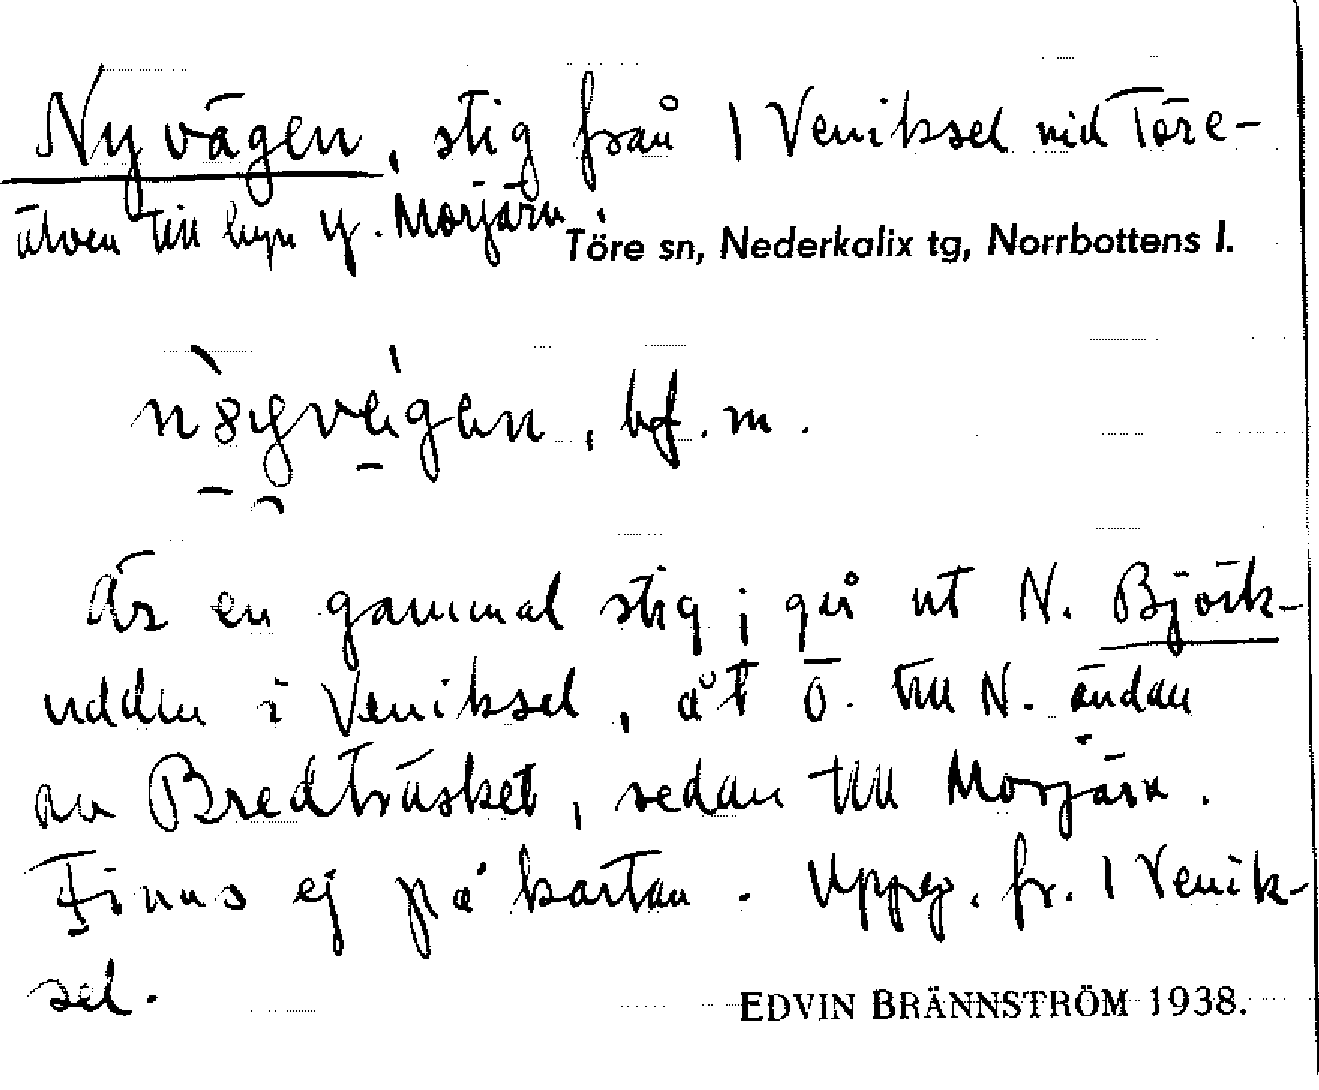 Nyvägen, stig från 1 Veniksel vid Töre-
älven till byn Y. Morjärv.
Töre sn, Nederkalix tg, Norrbottens l.
bf. m.
Är en gammal stig; går ut N. Björk-
udden i Veniksel, åt Ö. till N. ändan
av Bredträsket, sedan till Morjärv.
Finns ej på kartan. Uppg. fr. 1 Venik-
sel.
EDVIN BRÄNNSTRÖM 1938.